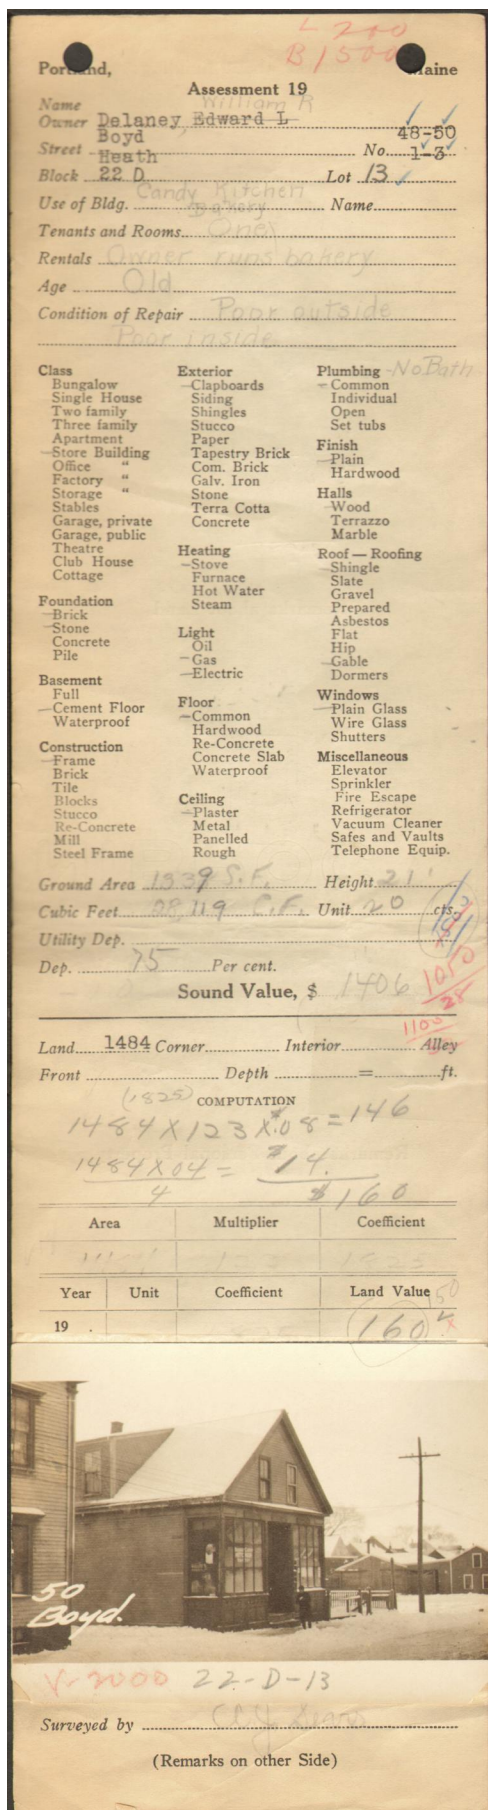 L 200
B 1500
Portland, Maine
Assessment 19
Name William R
Owner Delaney, Edward L
Boyd 48-50
Street Heath No. 1-3
Block 22 D Lot 13
Candy Kitchen
Use of Bldg. Bakery Name
Tenants and Rooms One
Rentals Owner runs bakery
Age Old
Condition of Repair Poor outside
Poor inside
Class
Bungalow
Single House
Two family
Three family
Apartment
Store Building
Office "
Factory "
Storage "
Stables
Garage, private
Garage, public
Theatre
Club House
Cottage
Foundation
Brick
Stone
Concrete
Pile
Basement
Full
Cement Floor
Waterproof
Construction
Frame
Brick
Tile
Blocks
Stucco
Re-Concrete
Mill
Steel Frame
Exterior
Clapboards
Siding
Shingles
Stucco
Paper
Tapestry Brick
Com. Brick
Galv. Iron
Stone
Terra Cotta
Concrete
Heating
Stove
Furnace
Hot Water
Steam
Light
Oil
Gas
Electric
Floor
Common
Hardwood
Re-Concrete
Concrete Slab
Waterproof
Ceiling
Plaster
Metal
Panelled
Rough
Plumbing -No Bath
Common
Individual
Open
Set tubs
Finish
Plain
Hardwood
Halls
Wood
Terrazzo
Marble
Roof — Roofing
Shingle
Slate
Gravel
Prepared
Asbestos
Flat
Hip
Gable
Dormers
Windows
Plain Glass
Wire Glass
Shutters
Miscellaneous
Elevator
Sprinkler
Fire Escape
Refrigerator
Vacuum Cleaner
Safes and Vaults
Telephone Equip.
Ground Area 1339 S.F. Height 21'
Cubic Feet 28,119 C.F. Unit 20 cts.
Utility Dep.
Dep. 75 Per cent.
Sound Value, $ 1406
1050
28
1100
Land 1484 Corner Interior Alley
Front Depth = ft.
(1825) COMPUTATION
1484 X 123 X .08 = 146
1484 X 04 = $14.
4 $160
Area Multiplier Coefficient
Year Unit Coefficient Land Value 50
19 160
50
Boyd.
V-2000 22-D-13
Surveyed by
(Remarks on other Side)